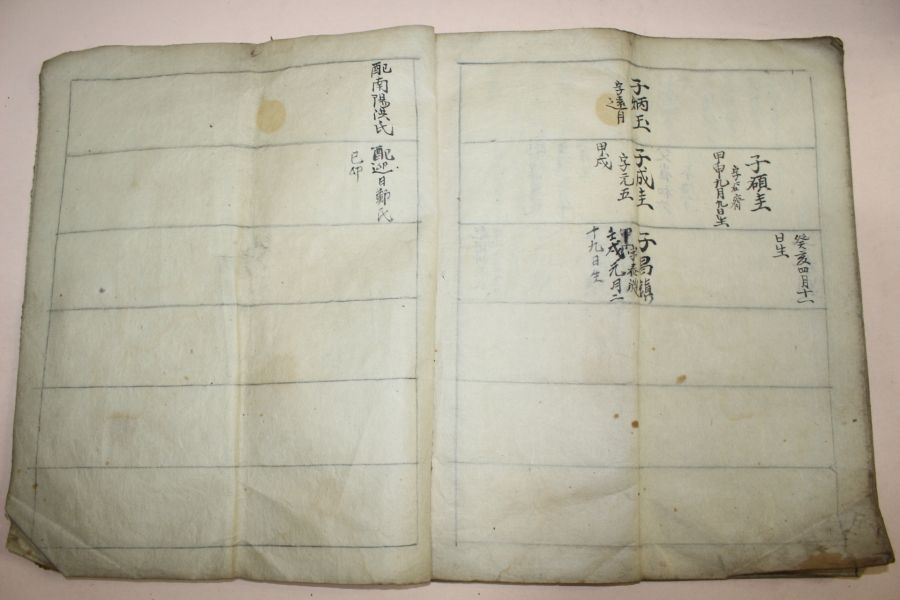 子炳玉
字達月
配南陽洪氏
子碩圭
甲申九月九日生
子成圭
字元五
甲戌
配迎日鄭氏
己卯
癸亥四月十一
日生
子昌鎮
壬戌元月二
十九日生